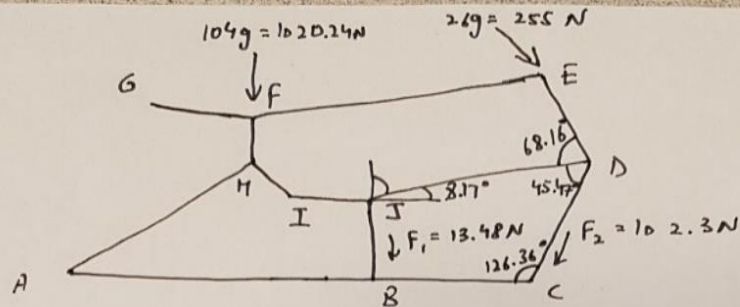 104g = 1020.24N
26g = 255 N
G
F
E
68.16°
H
D
8.17°
45.47°
I
J
F₁ = 13.48N
F₂ = 102.3N
126.36°
A
B
C